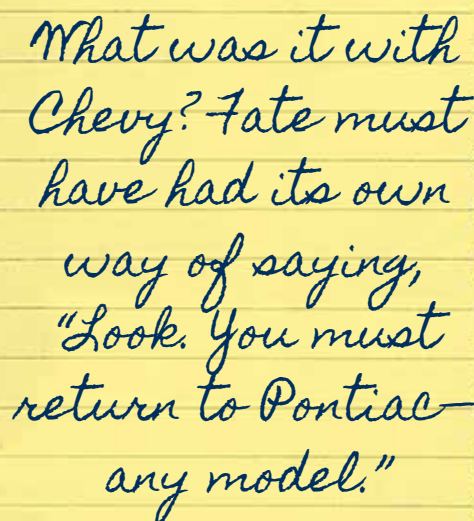 What was it with
Chevy? Fate must
have had its own
way of saying,
"Look. You must
return to Pontiac—
any model."